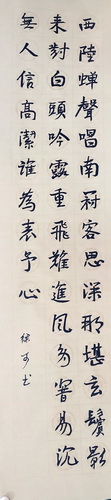 西陸蟬聲唱南冠客思深那堪玄鬢影
來對白頭吟露重飛難進風多響易沉
無人信高潔誰為表予心